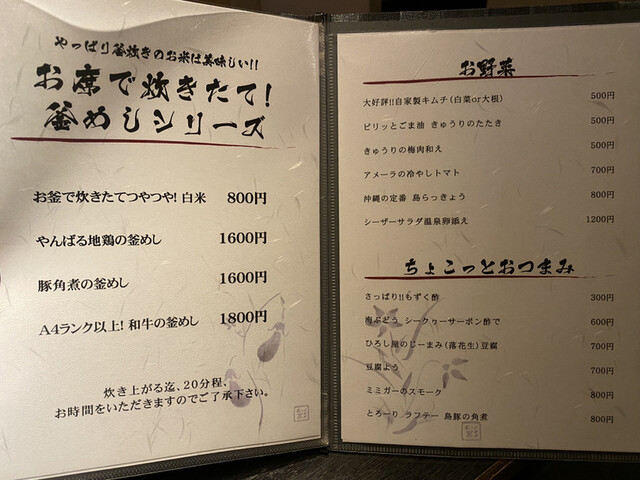 やっぱり釜炊きのお米は美味しい!!
お席で炊きたて!
釜めしシリーズ
お釜で炊きたてつやつや! 白米 800円
やんばる地鶏の釜めし 1600円
豚角煮の釜めし 1600円
A4ランク以上! 和牛の釜めし 1800円
炊き上がる迄、20分程、
お時間をいただきますのでご了承下さい。
お野菜
大好評!!自家製キムチ(白菜or大根) 500円
ピリッとごま油 きゅうりのたたき 500円
きゅうりの梅肉和え 500円
アメーラの冷やしトマト 700円
沖縄の定番 島らっきょう 800円
シーザーサラダ温泉卵添え 1200円
ちょこっとおつまみ
さっぱり!!もずく酢 300円
海ぶどう シークヮーサーポン酢で 600円
ひろし屋のじーまみ(落花生)豆腐 700円
豆腐よう 700円
ミミガーのスモーク 800円
とろーり ラフテー 島豚の角煮 800円